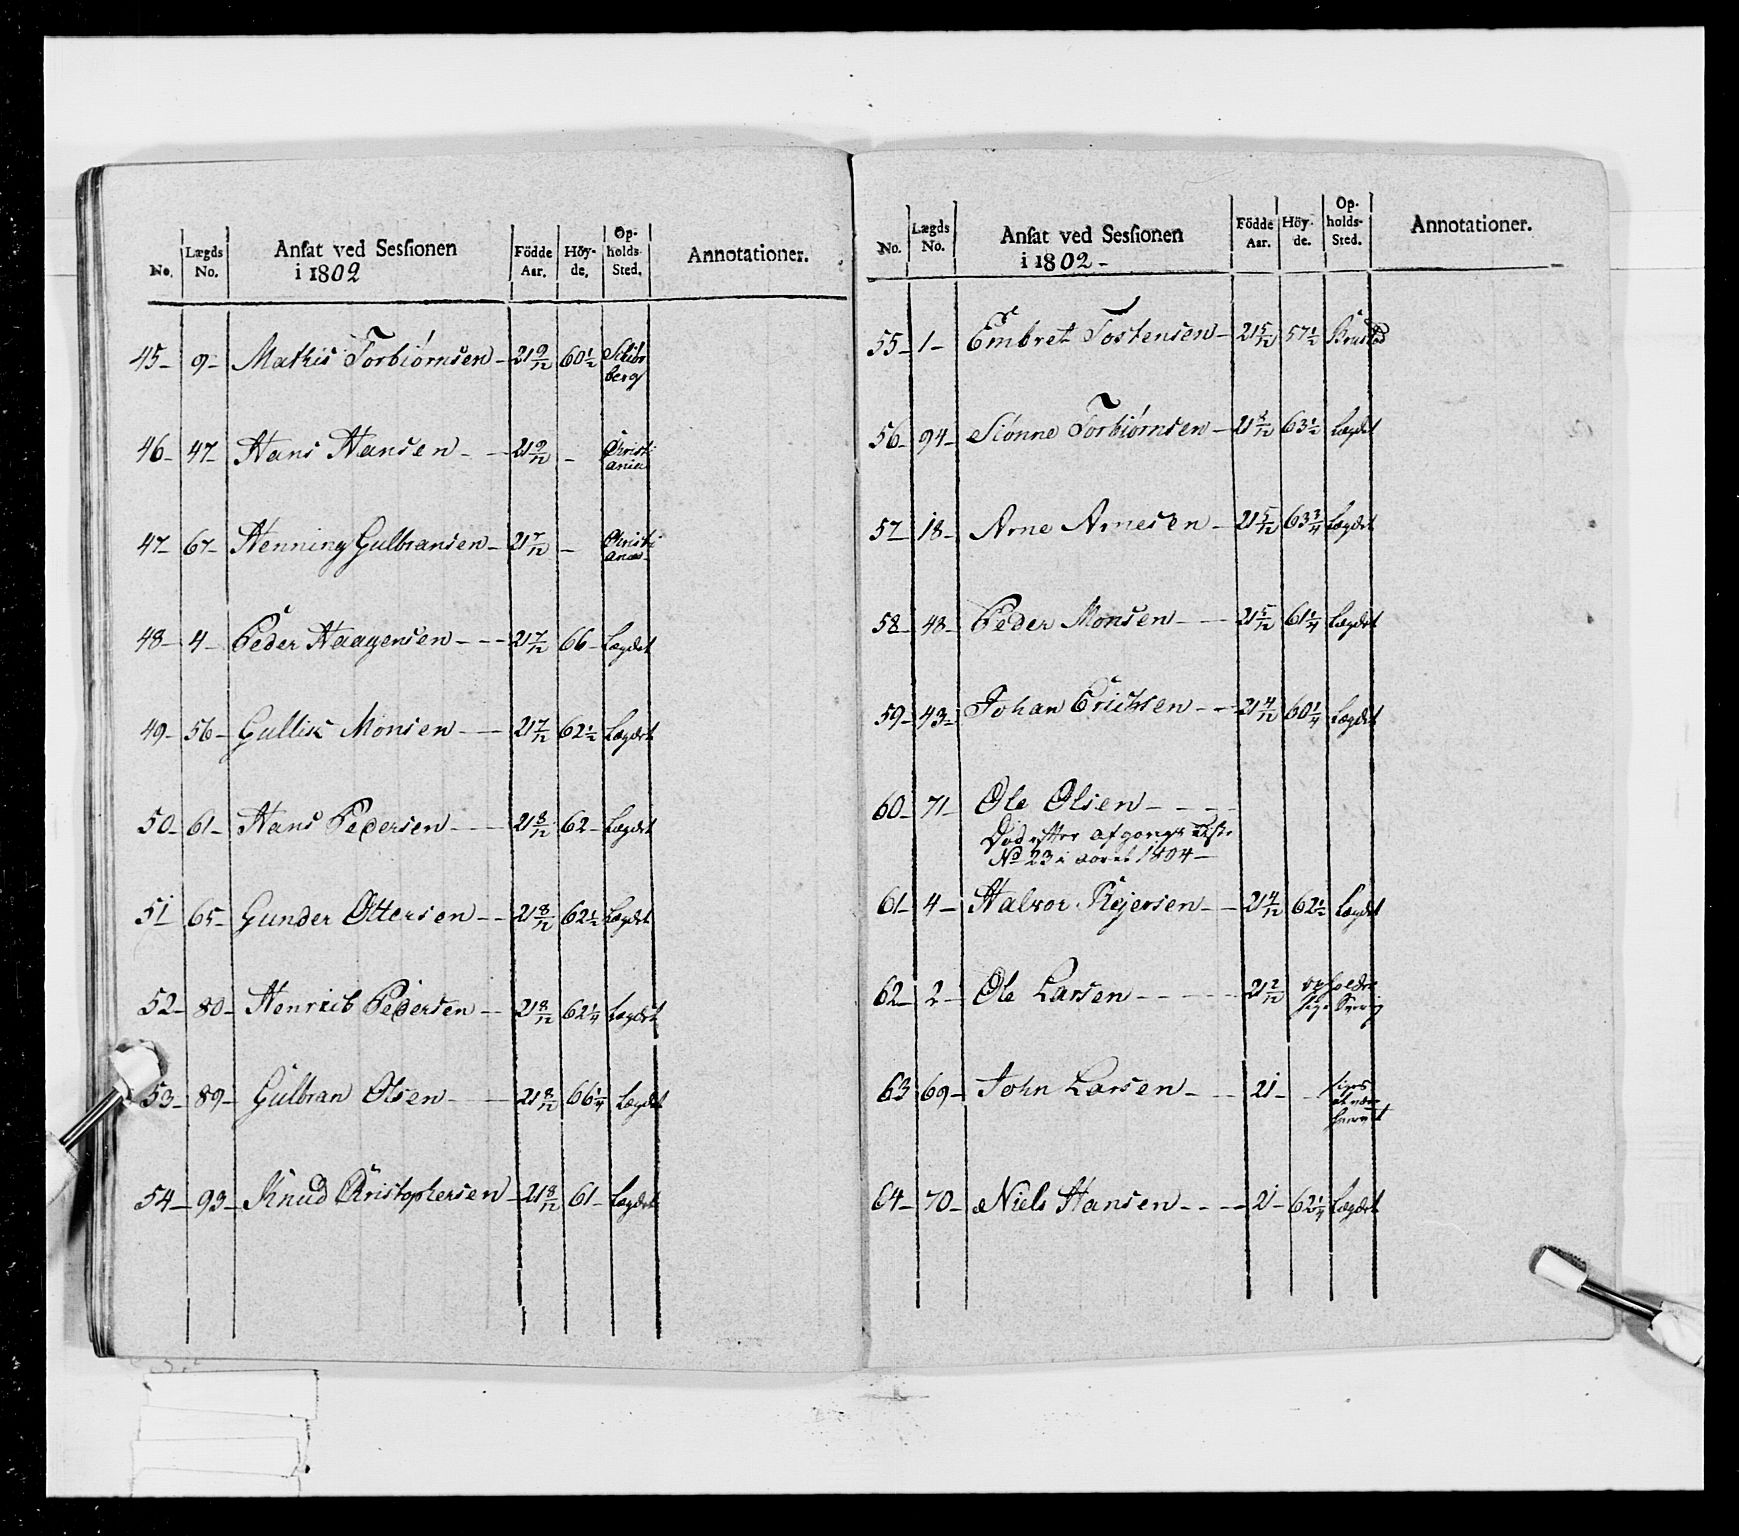 No. Lægds No. Ansat ved Sessionen i 1802 Födde Aar. Höy-de. Op-holds-Sted. Annotationer.
45 - 9 - Mathis Torbiørnsen - 21 9/12 60 1/2 Schiørberg
46 - 47 - Hans Hansen - - 21 9/12 - Christiania
47 - 67 - Henning Gulbransen - 21 7/12 - Christiania
48 - 4 - Peder Haagensen - - - 21 7/12 66 - Lægdet
49 - 56 - Gullik Monsen - - 21 7/12 62 1/2 Lægdet
50 - 61 - Hans Pedersen - - 21 8/12 62 - Lægdet
51 65 - Gunder Ottersen - - 21 8/12 62 1/2 Lægdet
52 - 80 - Henrich Pedersen - - 21 8/12 62 1/4 Lægdet
53 - 89 - Gulbran Olsen - - 21 8/12 66 1/4 Lægdet
54 - 93 - Knud Christophersen - 21 8/12 61 - Lægdet
No. Lægds No. Ansat ved Sessionen i 1802 - Födde Aar. Höy-de. Op-holds-Sted. Annotationer.
55 - 1 - Embret Tostensen - 21 5/12 57 1/2 Brustad
56 - 94 - Siønne Torbiørnsen - 21 8/12 63 1/2 Lægdet
57 18 - Arne Arnesen - 21 5/12 63 3/4 Lægdet
58 - 48 - Peder Monsen - - 21 5/12 61 1/4 Lægdet
59 - 43 - Johan Erichsen - - 21 4/12 60 1/4 Lægdet
60 - 71 - Ole Olsen - - - -
Död efter afgangs Liste
No 23 i aaret 1804 -
61 - 4 - Halvor Rejersen - - 21 4/12 62 1/2 Lægdet
62 - 2 - Ole Larsen - - - - 21 2/12
63 69 - John Larsen - - - 21 - -
64 - 70 - Niels Hansen - - - - 21 - 62 1/4 Lægdet